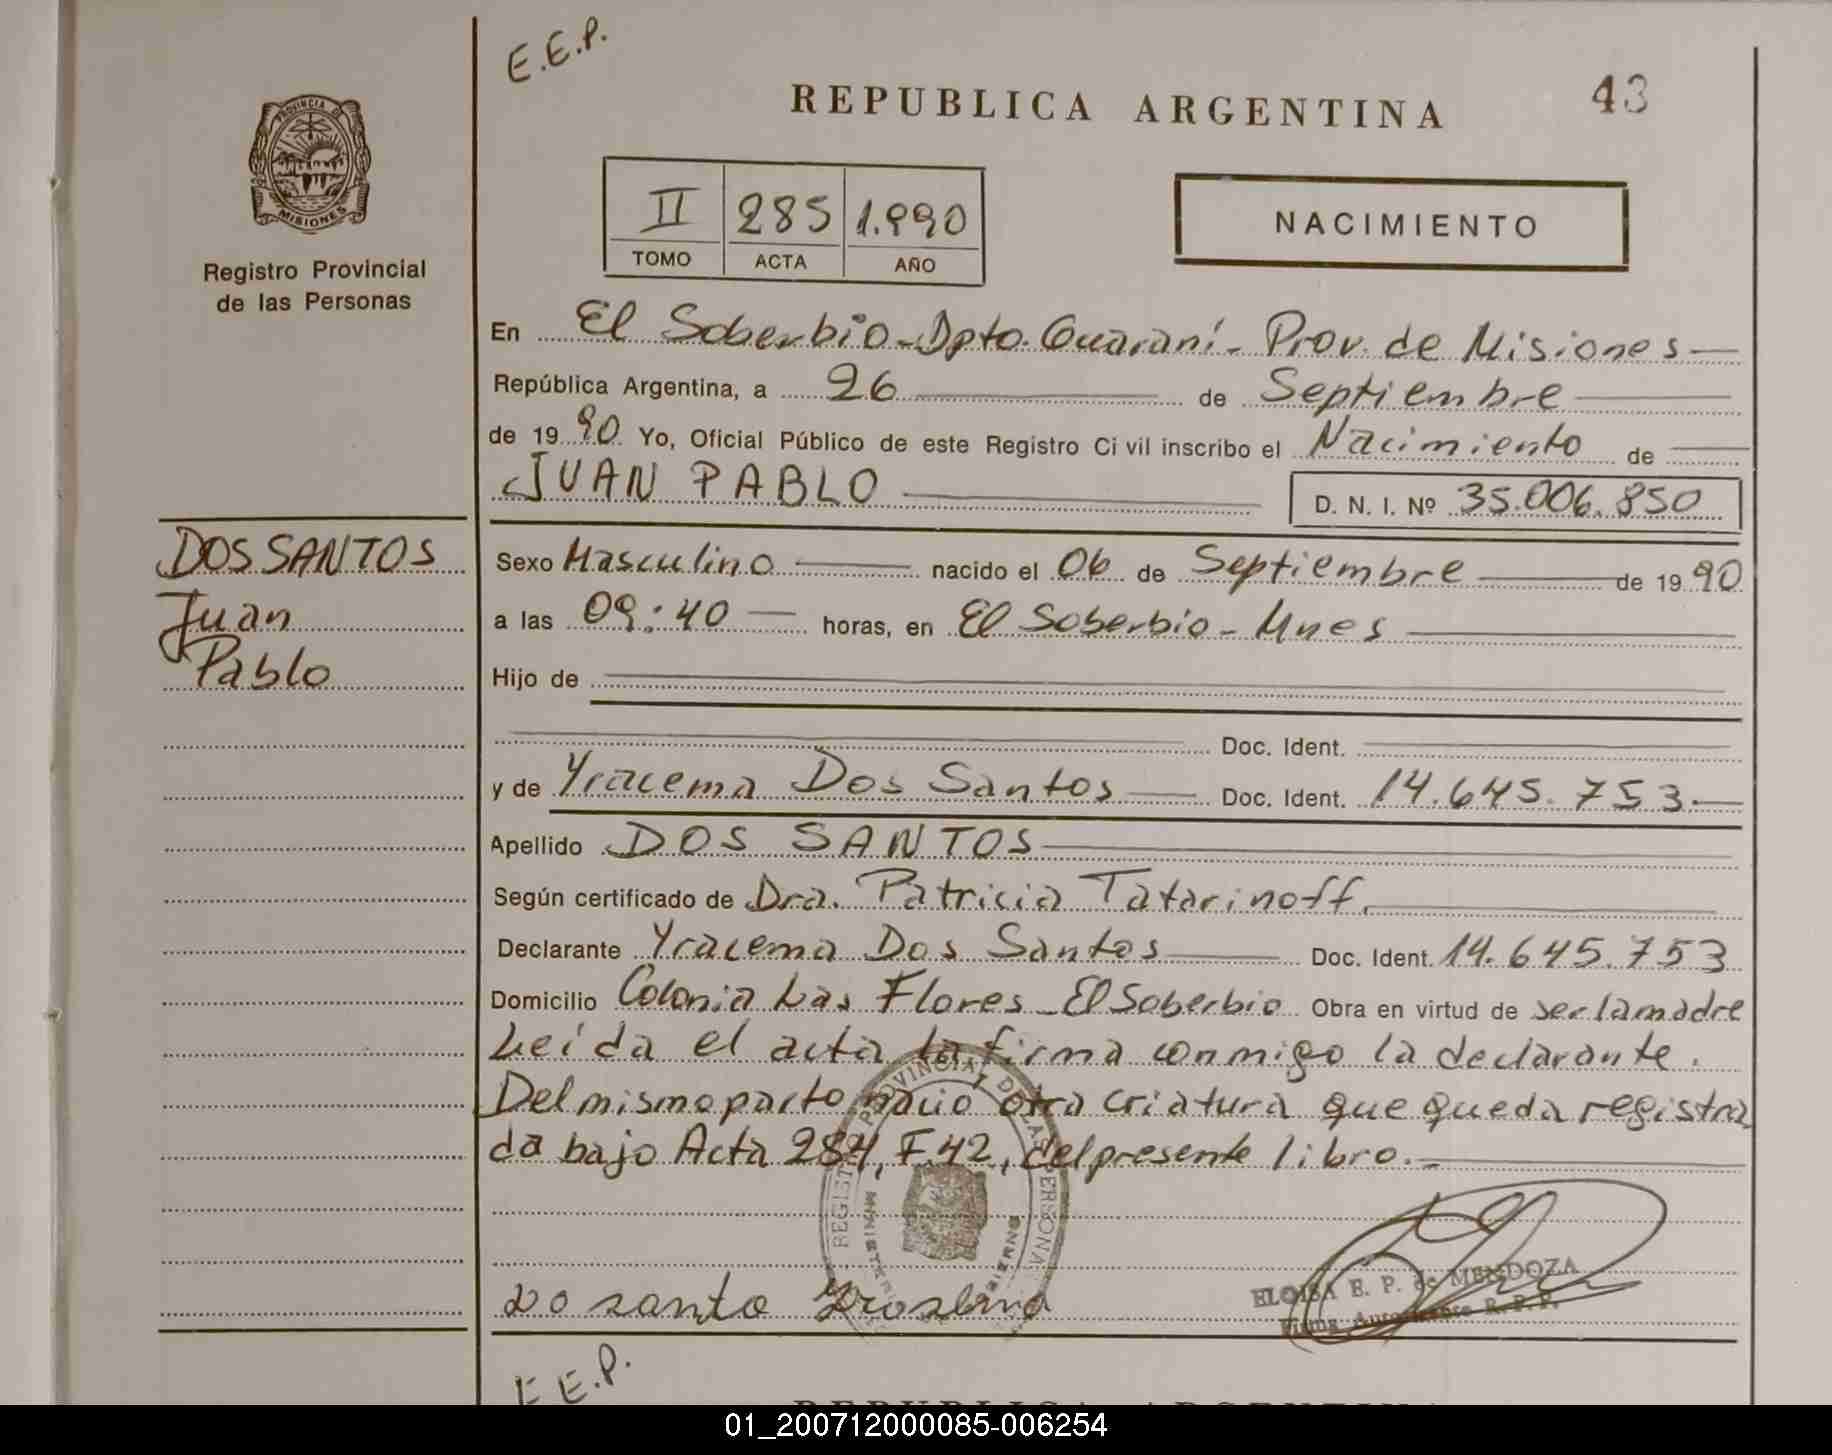 E.E.P.
REPUBLICA ARGENTINA
43
PROVINCIA DE
MISIONES
Registro Provincial
de las Personas
II 285 1.990
TOMO ACTA AÑO
NACIMIENTO
En El Soberbio-Dpto. Guaraní- Prov. de Misiones
República Argentina, a 26 de Septiembre
de 1990 Yo, Oficial Público de este Registro Civil inscribo el Nacimiento de
JUAN PABLO D. N. I. Nº 35.006.850
DOS SANTOS
Juan
Pablo
Sexo Masculino nacido el 06 de Septiembre de 1990
a las 09:40 horas, en El Soberbio - Mnes
Hijo de
Doc. Ident.
y de Yracema Dos Santos Doc. Ident. 14.645.753.
Apellido DOS SANTOS
Según certificado de Dra. Patricia Tatarinoff.
Declarante Yracema Dos Santos Doc. Ident. 14.645.753
Domicilio Colonia Las Flores - El Soberbio Obra en virtud de ser la madre
Leída el acta la firma conmigo la declarante.
Del mismo parto nacio otra criatura que queda registra
da bajo Acta 284, F. 42, del presente libro.-
REGISTRO PROVINCIAL DE LAS PERSONAS
do santo
ELOISA E. P. de MENDOZA
Firma Autorizante R. P. P.
E E.P.
REPUBLICA ARGENTINA
01_200712000085-006254